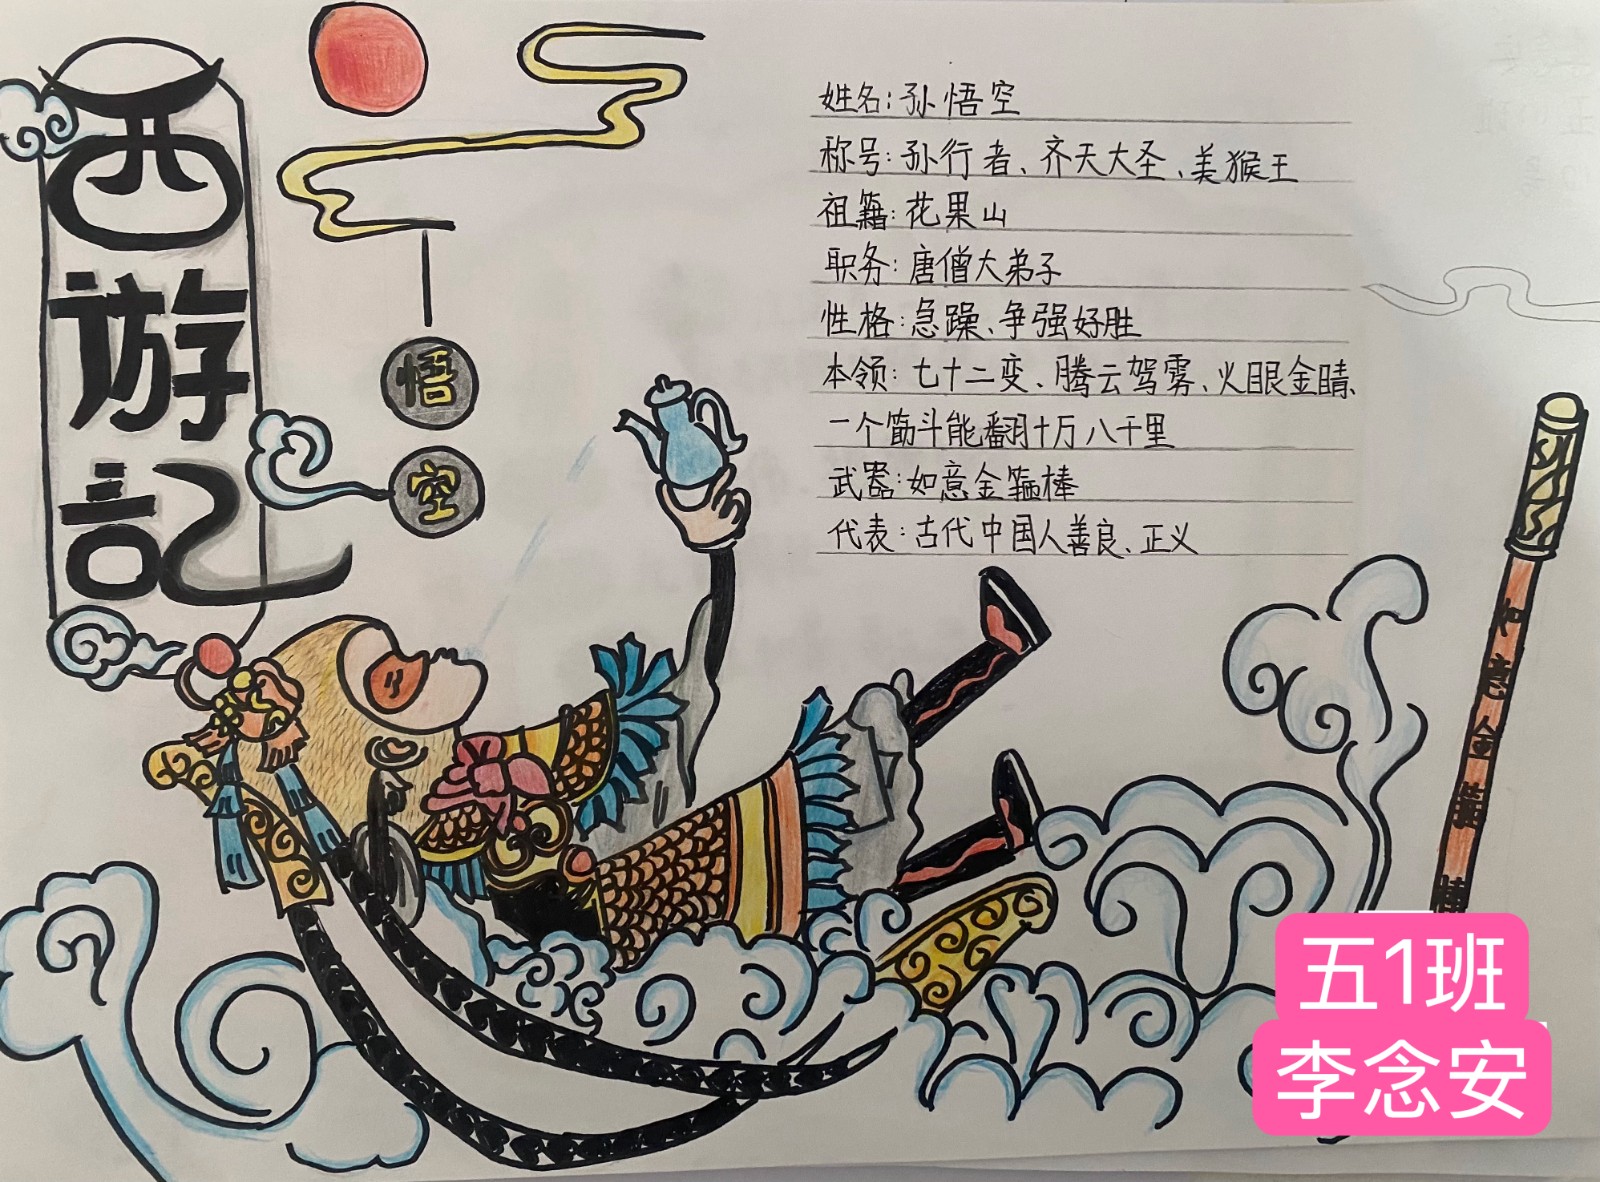 西遊記
悟空
姓名:孙悟空
称号:孙行者、齐天大圣、美猴王
祖籍:花果山
职务:唐僧大弟子
性格:急躁、争强好胜
本领:七十二变、腾云驾雾、火眼金睛、
一个筋斗能翻十万八千里
武器:如意金箍棒
代表:古代中国人善良、正义
如意金箍棒
五1班
李念安